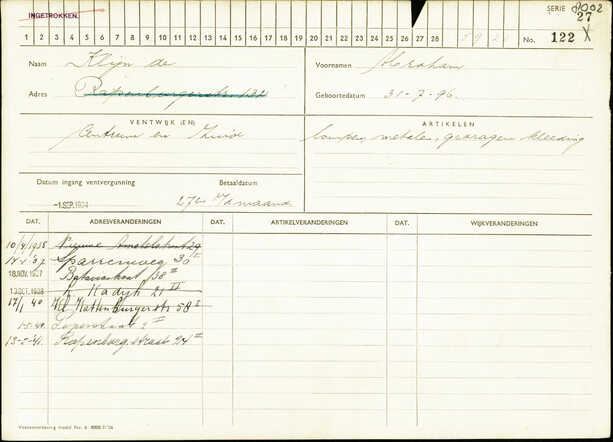 INGETROKKEN.
SERIE 8002
27
1 2 3 4 5 6 7 8 9 10 11 12 13 14 15 16 17 18 19 20 21 22 23 24 25 26 27 28
No. 122 X
Naam Klijn de
Voornamen Abraham
Adres Rapenburgerstr 132
Geboortedatum 31-7-96.
VENTWIJK (EN)
ARTIKELEN
Centrum en Zuid
lompen, metalen, gedragen kleeding
Datum ingang ventvergunning
Betaaldatum
-1 SEP. 1934
27e v/d maand
DAT. ADRESVERANDERINGEN DAT. ARTIKELVERANDERINGEN DAT. WIJKVERANDERINGEN
10/4/1935 Nieuwe Amstelstraat 29
Sparrenweg 30
18 NOV. 1937 38 II
13 OCT. 1938 Kadijk 21
17/1 40 Kl Kattenburgerstr 58
1-5-40. 2 II
13-2-'41. Rapenburgstraat 24 II